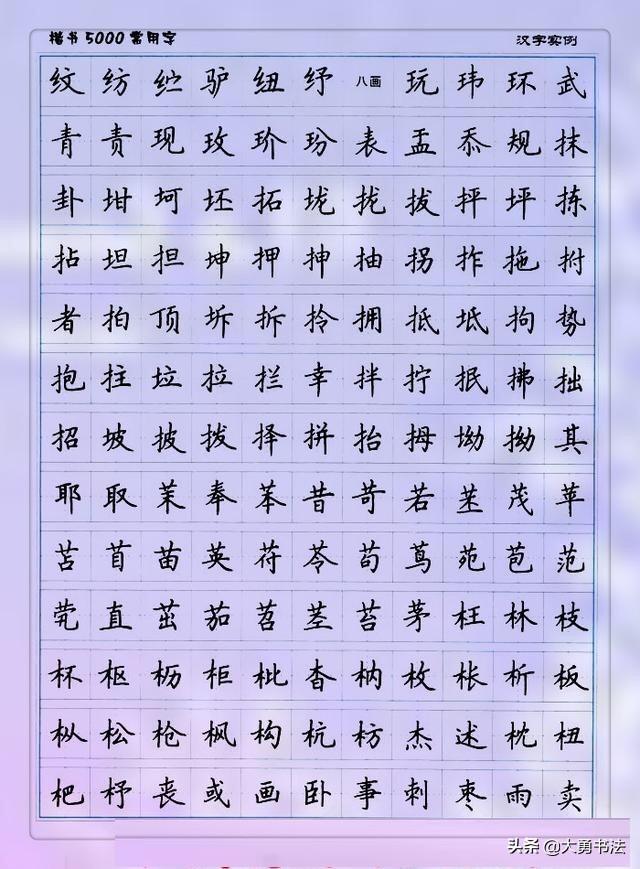 楷书5000常用字 汉字实例
纹 纺 纻 驴 纽 纾 八画 玩 玮 环 武
青 责 现 玫 玠 玢 表 盂 忝 规 抹
卦 坩 坷 坯 拓 垅 拢 拔 抨 坪 拣
拈 坦 担 坤 押 抻 抽 拐 拃 拖 拊
者 拍 顶 坼 拆 拎 拥 抵 坻 拘 势
抱 拄 垃 拉 拦 幸 拌 拧 抿 拂 拙
招 坡 披 拨 择 拼 抬 拇 坳 拗 其
耶 取 茉 奉 苯 昔 苛 若 茂 苹
苫 苜 苗 英 苻 苓 苟 茑 苑 苞 范
茕 直 茁 茄 苕 茎 苔 茅 枉 林 枝
杯 枢 枥 柜 枇 杳 枘 枚 枨 析 板
枞 松 枪 枫 构 杭 枋 杰 述 枕 杻
杷 杼 丧 或 画 卧 事 刺 枣 雨 卖
头条 @大勇书法